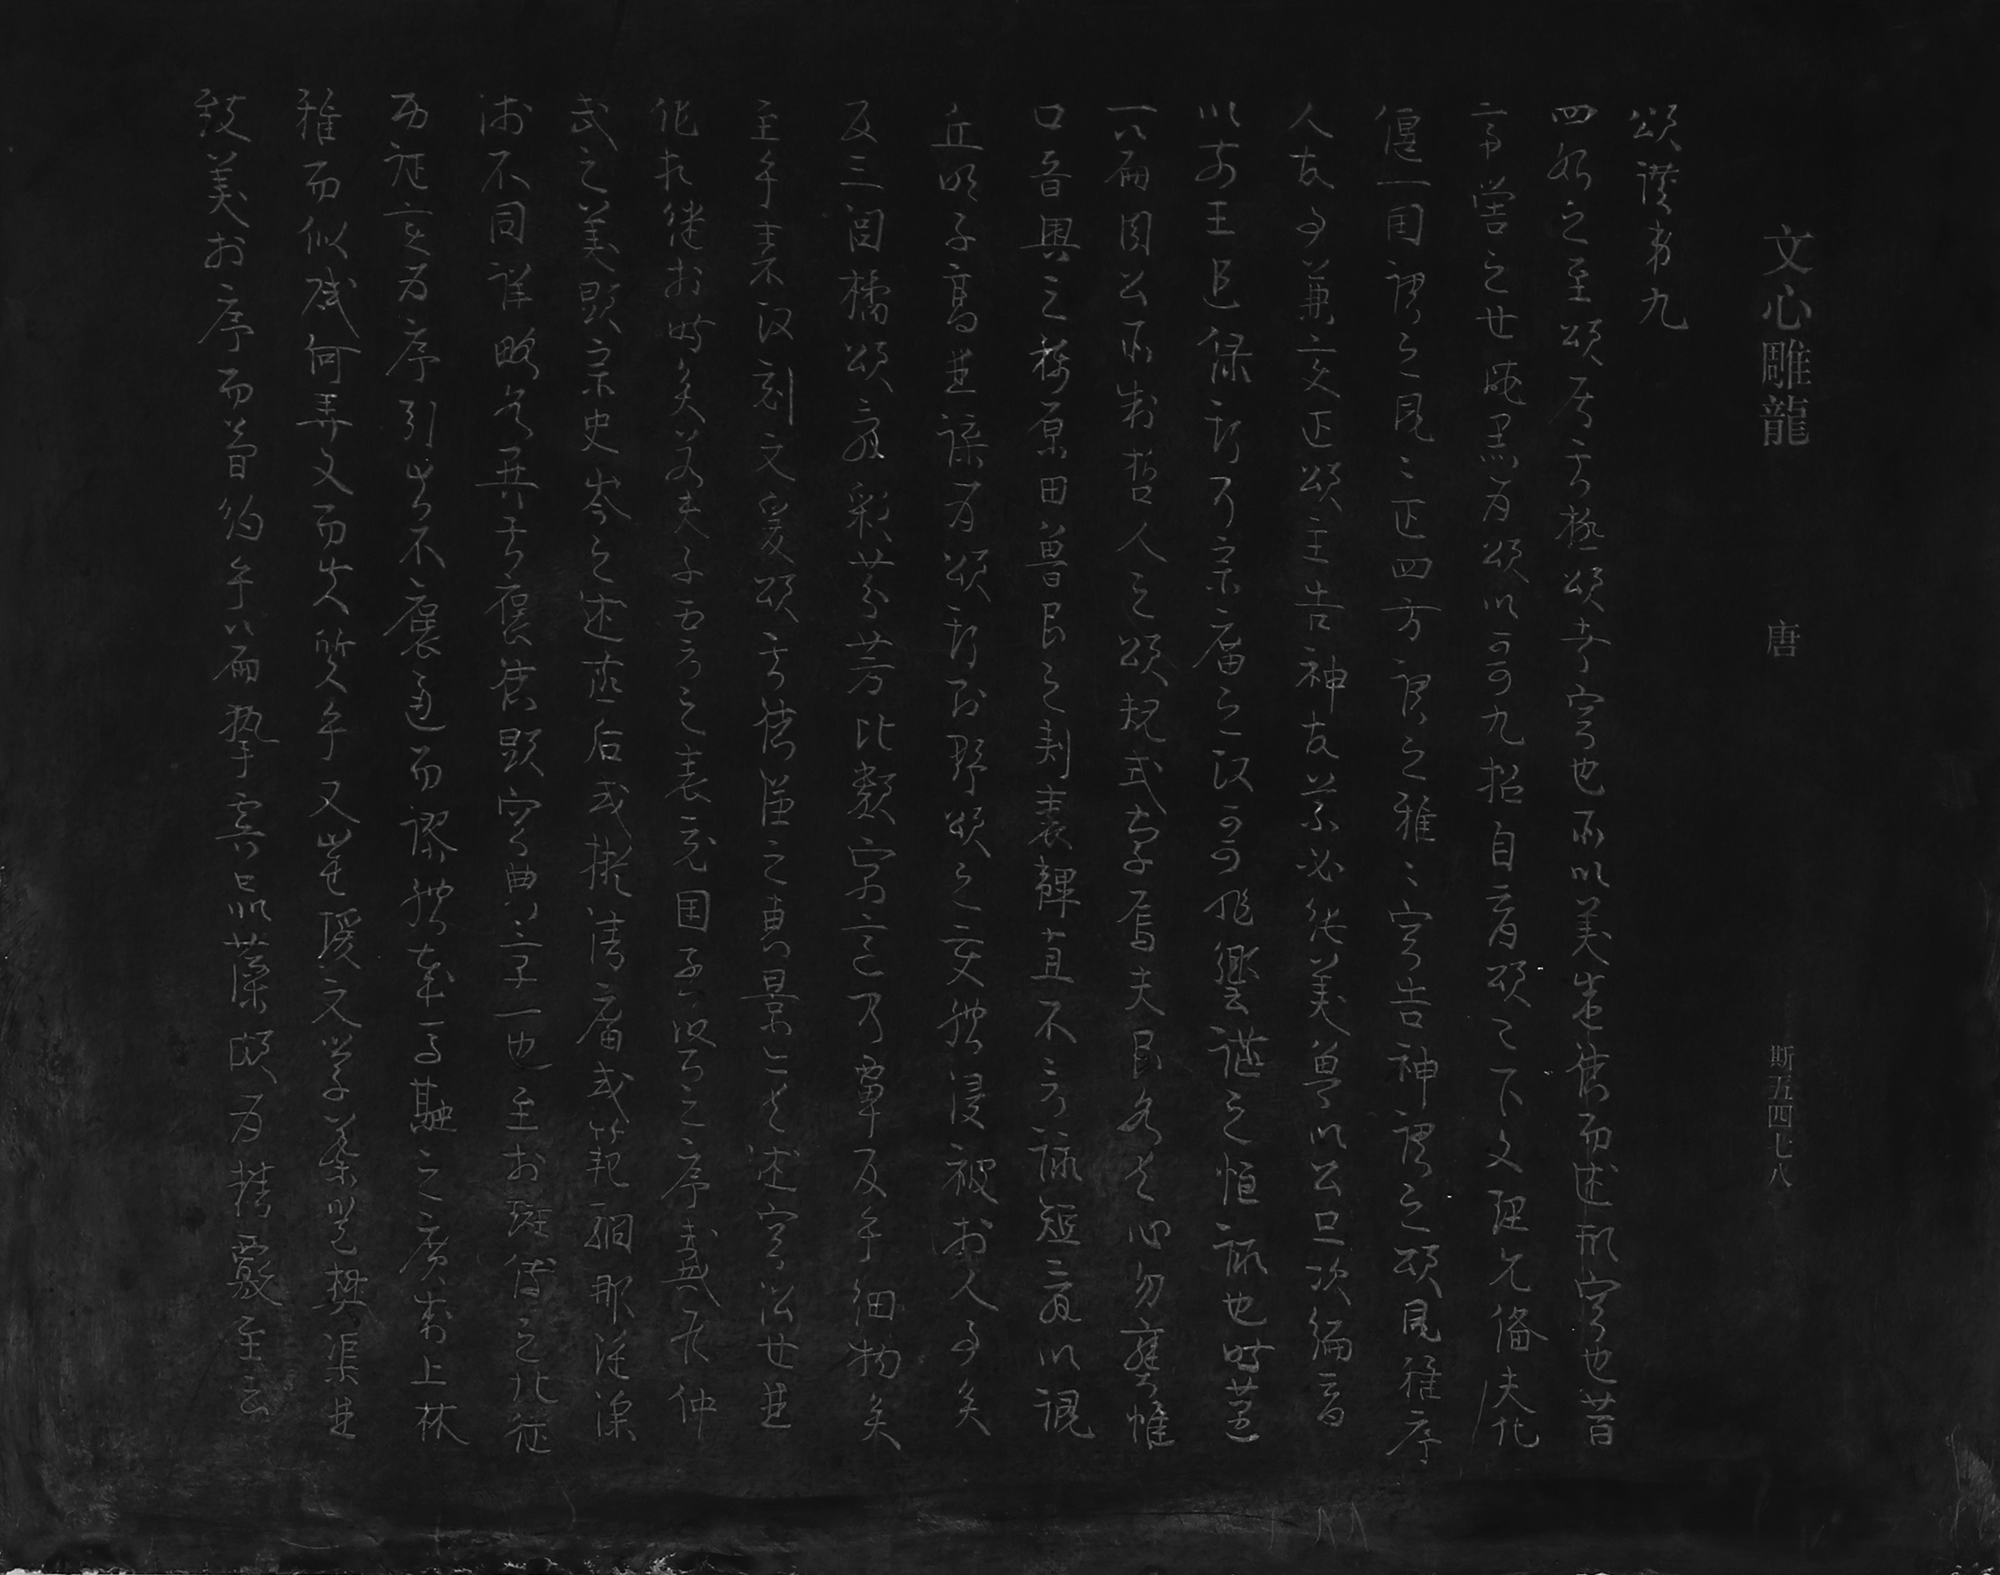 文心雕龍 唐 斯五四七八
頌讚第九
四始之至頌居其極頌者容也所以美盛德而述形容也昔
帝嚳之世咸黑為頌以歌九招自商頌之下文理允備夫化
偃一國謂之風々正四方謂之雅々容告神謂之頌風雅序
人故事兼變正頌主告神故義必純美魯以公旦次編商
以前王追錄斯乃宗廟之政歌非饗讌之恒詠也時邁
一篇周公所制哲人之頌規式存焉夫民各有心勿壅惟
口晉輿之稱原田魯民之刺裘鞸直不言詠短辭以諷
丘明子高並諜為頌斯則野頌之變體浸被於人事矣
及三閭橘頌辭彩芬芳比類寓意乃覃及乎細物矣
至乎秦政刻文爰頌其德漢之惠景亦有述容沿世並
作相繼於時矣若夫子雲之表充國孟堅之序戴侯仲
武之美顯宗史岑之述燕后或擬清廟或範駉那雖深
淺不同詳略各異其褒德顯容典章一也至於班傅之北征
西征變為序引豈不褒過而謬體哉馬融之廣成上林
雅而似賦何弄文而失質乎又崔瑗文學蔡邕樊渠並
致美於序而簡約乎篇摯虞品藻頗為精覈至云